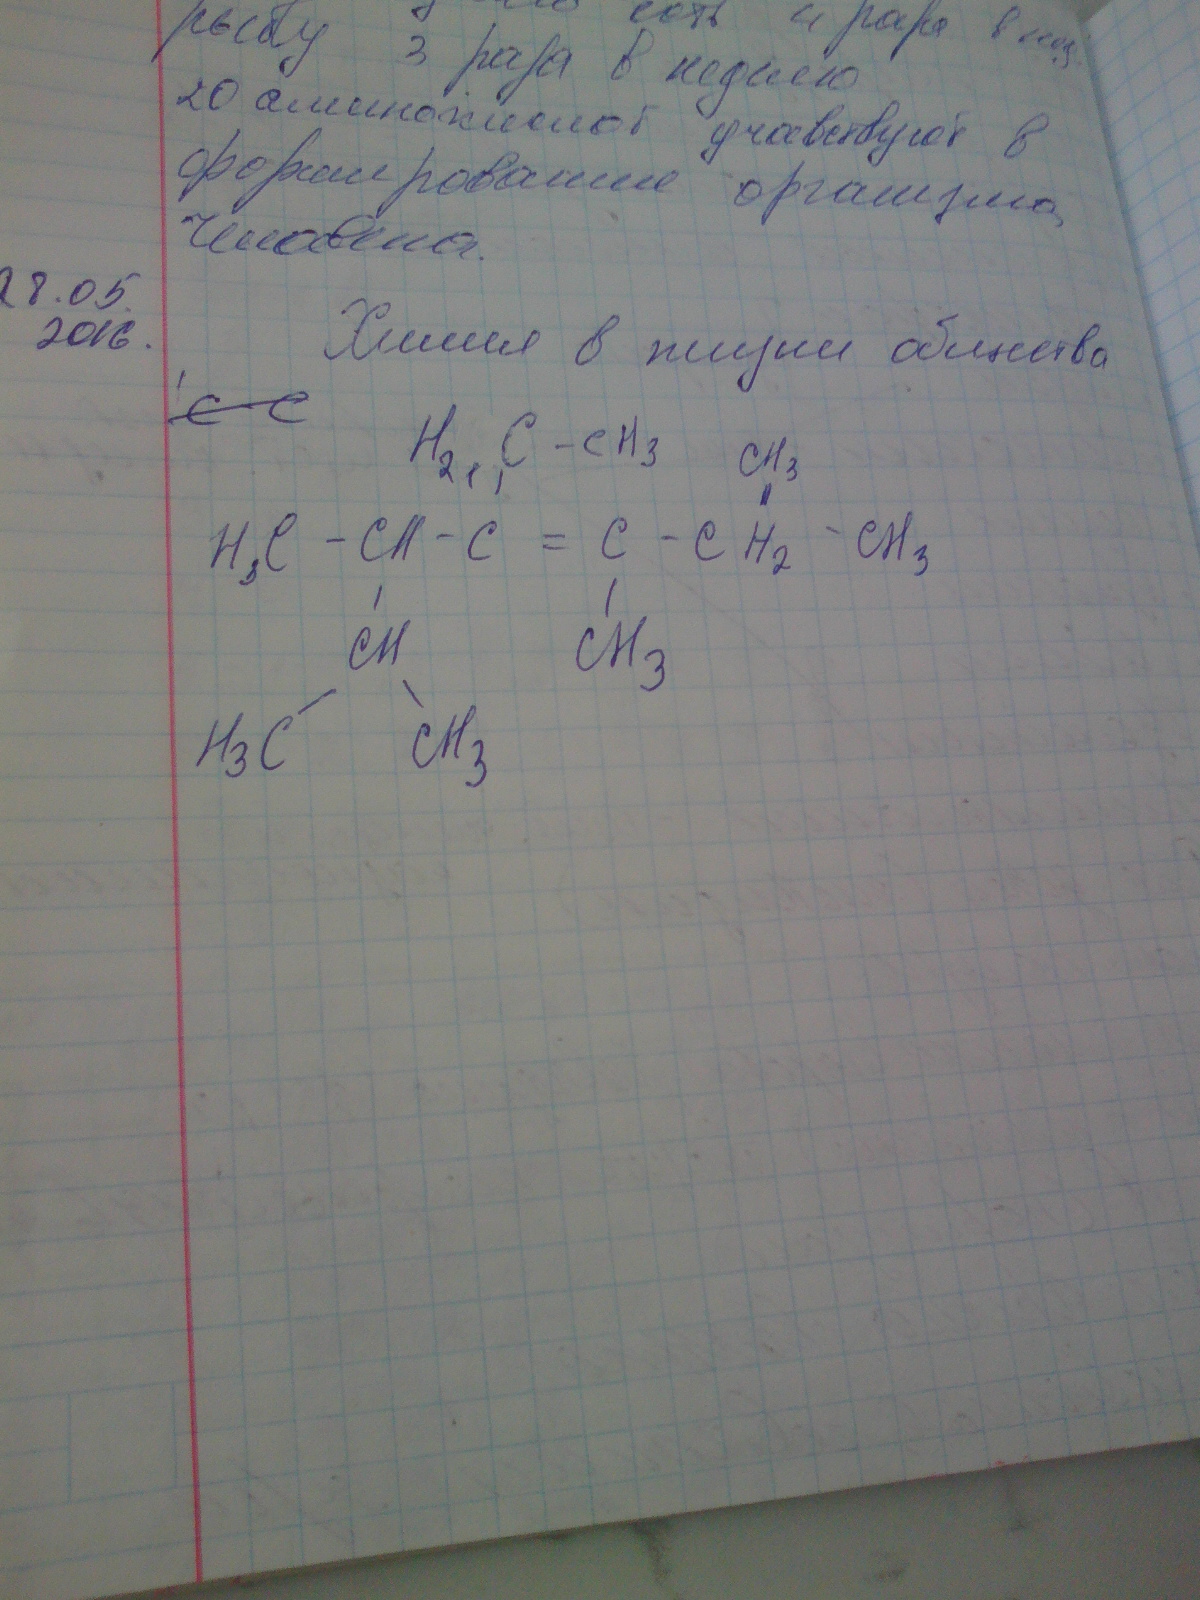 рыбу 3 раза в неделю
20 аминокислот учавствуют в
формирование организма
человека.
28.05.
2016.
Химия в жизни общества
C - C
H2C - CH3 CH3
H3C - CH - C = C - CH2 - CH3
CH CH3
H3C CH3